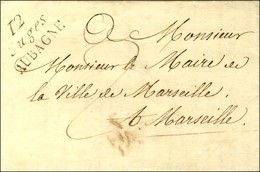 12
Cuges
AUBAGNE
2
A Monsieur
Monsieur le Maire de
la Ville de Marseille.
A Marseille.